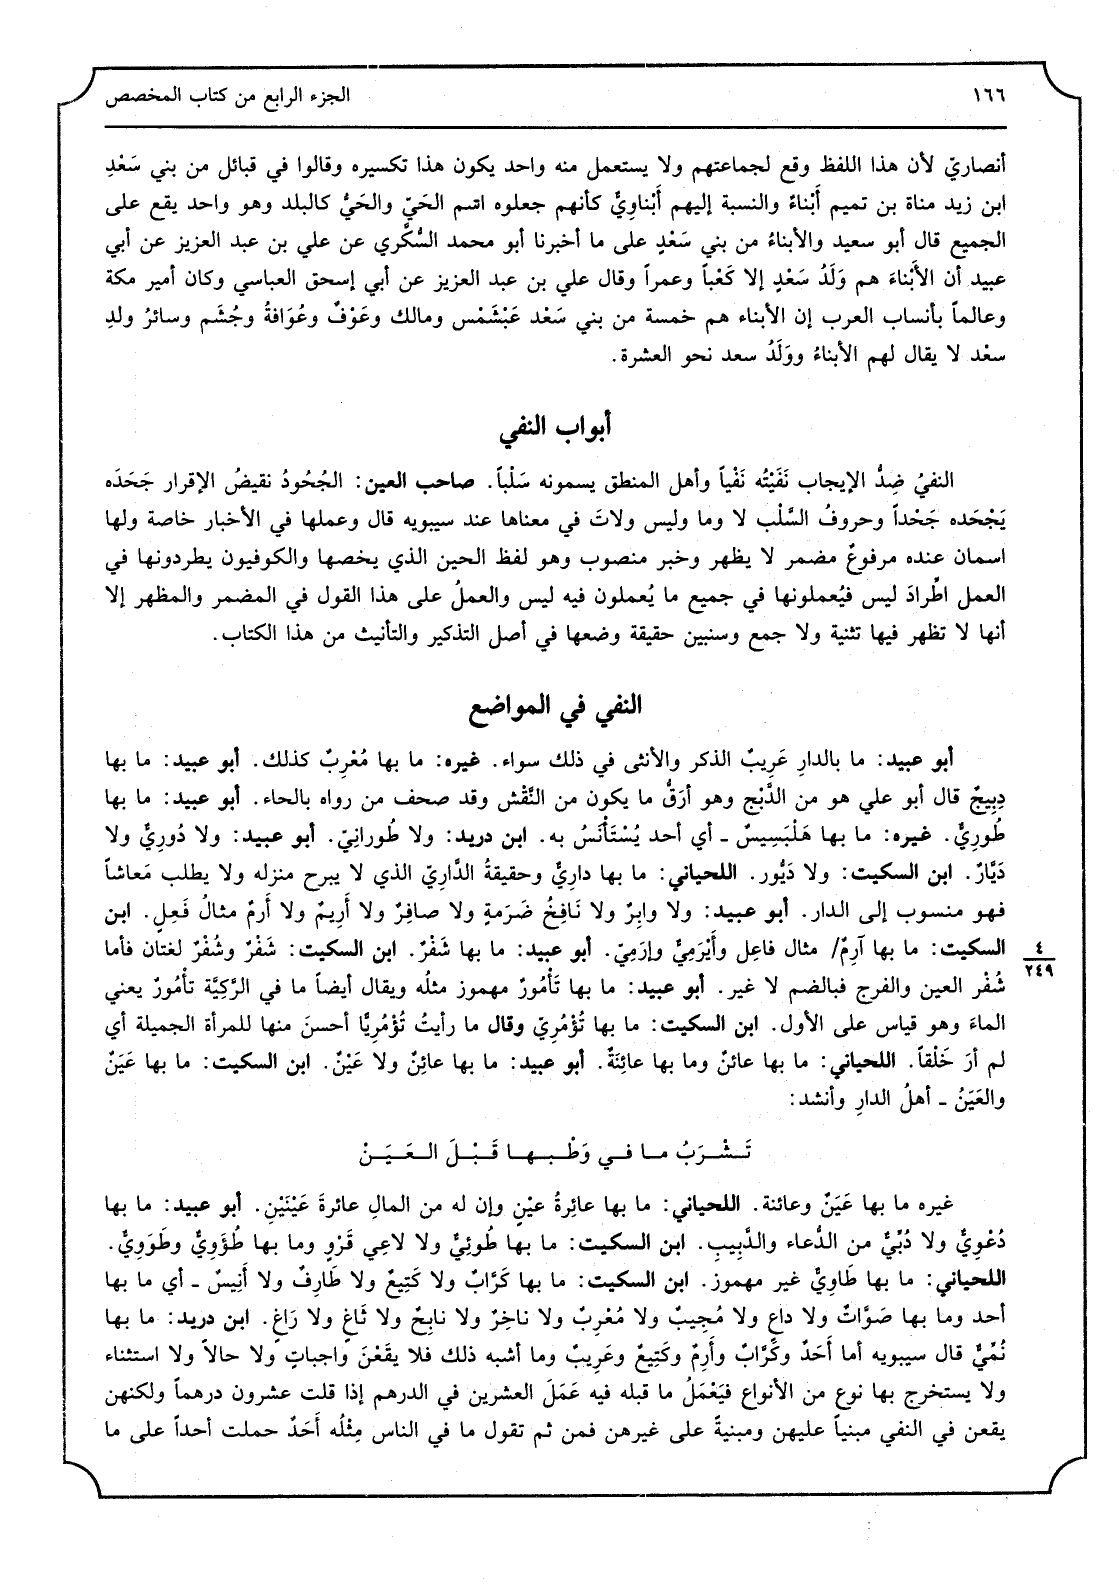 ١٦٦
الجزء الرابع من كتاب المخصص
أنصاريّ لأن هذا اللفظ وقع لجماعتهم ولا يستعمل منه واحد يكون هذا تكسيره وقالوا في قبائل من بني سَعْدِ
ابن زيد مناة بن تميم أَبْناءٌ والنسبة إليهم أَبْناوِيٌّ كأنهم جعلوه اسم الحَيّ والحَيُّ كالبلد وهو واحد يقع على
الجميع قال أبو سعيد والأبناءُ من بني سَعْدٍ على ما أخبرنا أبو محمد السُّكَّري عن علي بن عبد العزيز عن أبي
عبيد أن الأَبْناءَ هم وَلَدُ سَعْدٍ إلا كَعْباً وعمراً وقال علي بن عبد العزيز عن أبي إسحق العباسي وكان أمير مكة
وعالماً بأنساب العرب إن الأبناء هم خمسة من بني سَعْد عَبْشَمْس ومالك وعَوْفٌ وعُوَافةُ وجُشَم وسائرُ ولدِ
سعْد لا يقال لهم الأبناءُ ووَلَدُ سعد نحو العشرة.
أبواب النفي
النفيُ ضِدُّ الإيجاب نَفَيْتُه نَفْياً وأهل المنطق يسمونه سَلْباً. صاحب العين: الجُحُودُ نقيضُ الإقرار جَحَدَه
يَجْحَده جَحْداً وحروفُ السَّلْب لا وما وليس ولاتَ في معناها عند سيبويه قال وعملها في الأخبار خاصة ولها
اسمان عنده مرفوعٌ مضمر لا يظهر وخبر منصوب وهو لفظ الحين الذي يخصها والكوفيون يطردونها في
العمل اطِّرادَ ليس فيُعملونها في جميع ما يُعملون فيه ليس والعملُ على هذا القول في المضمر والمظهر إلا
أنها لا تظهر فيها تثنية ولا جمع وسنبين حقيقة وضعها في أصل التذكير والتأنيث من هذا الكتاب.
النفي في المواضع
أبو عبيد: ما بالدارِ عَرِيبٌ الذكر والأنثى في ذلك سواء. غيره: ما بها مُعْرِبٌ كذلك. أبو عبيد: ما بها
دِبِيجٌ قال أبو علي هو من الدَّبْج وهو أرَقُّ ما يكون من النَّقْش وقد صحف من رواه بالحاء. أبو عبيد: ما بها
طُورِيٌّ. غيره: ما بها هَلْبَسِيسٌ ـ أي أحد يُسْتَأْنَسُ به. ابن دريد: ولا طُورانِيّ. أبو عبيد: ولا دُورِيٌّ ولا
دَيَّارٌ. ابن السكيت: ولا دَيُّور. اللحياني: ما بها دارِيٌّ وحقيقةُ الدَّارِيّ الذي لا يبرح منزله ولا يطلب مَعاشاً
فهو منسوب إلى الدار. أبو عبيد: ولا وابِرٌ ولا نَافِخُ ضَرَمةٍ ولا صافِرٌ ولا أَرِيمٌ ولا أَرِمٌ مثالُ فَعِلٍ. ابن
السكيت: ما بها آرِمٌ/ مثال فاعِل وأَيْرَمِيٌّ وإرَمِيّ. أبو عبيد: ما بها شَفْرٌ. ابن السكيت: شَفْرٌ وشُفْرٌ لغتان فأما
٤
٢٤٩
شُفْر العين والفرج فبالضم لا غير. أبو عبيد: ما بها تَأْمُورٌ مهموز مثلُه ويقال أيضاً ما في الرَّكِيَّة تأْمُورٌ يعني
الماءَ وهو قياس على الأول. ابن السكيت: ما بها تُؤْمُرِيّ وقال ما رأيتُ تُؤْمُرِيًّا أحسنَ منها للمرأة الجميلة أي
لم أرَ خَلْقاً. اللحياني: ما بها عائنٌ وما بها عائِنَةٌ. أبو عبيد: ما بها عائِنٌ ولا عَيْنٌ. ابن السكيت: ما بها عَيَنٌ
والعَيَنُ ـ أهلُ الدارِ وأنشد:
تَـشْـرَبُ مـا فـي وَطْـبـهـا قَـبْـلَ الـعَـيَـنْ
غيره ما بها عَيَنٌ وعائنة. اللحياني: ما بها عائِرةُ عيْنٍ وإن له من المالِ عائرةَ عَيْنَيْنِ. أبو عبيد: ما بها
دُعْوِيٌّ ولا دُبِّيٌّ من الدُّعاء والدَّبِيبِ. ابن السكيت: ما بها طُوئِيٌّ ولا لاعِي قَرْوٍ وما بها طُؤَوِيٌّ وطَوَوِيٌّ.
اللحياني: ما بها طَاوِيٌّ غير مهموز. ابن السكيت: ما بها كَرَّابٌ ولا كَتِيعٌ ولا طَارِفٌ ولا أَنِيسٌ ـ أي ما بها
أحد وما بها صَوَّاتٌ ولا داعٍ ولا مُجِيبٌ ولا مُعْرِبٌ ولا ناخِرٌ ولا نابِحٌ ولا ثَاغٍ ولا رَاغٍ. ابن دريد: ما بها
نُمِّيٌّ قال سيبويه أما أَحَدٌ وكَرَّابٌ وأَرِمٌ وكَتِيعٌ وعَرِيبٌ وما أشبه ذلك فلا يقَعْنَ واجباتٍ ولا حالاً ولا استثناء
ولا يستخرج بها نوع من الأنواع فيَعْمَلُ ما قبله فيه عَمَلَ العشرين في الدرهم إذا قلت عشرون درهماً ولكنهن
يقعن في النفي مبنياً عليهن ومبنيةً على غيرهن فمن ثم تقول ما في الناس مِثْلُه أَحَدٌ حملت أحداً على ما